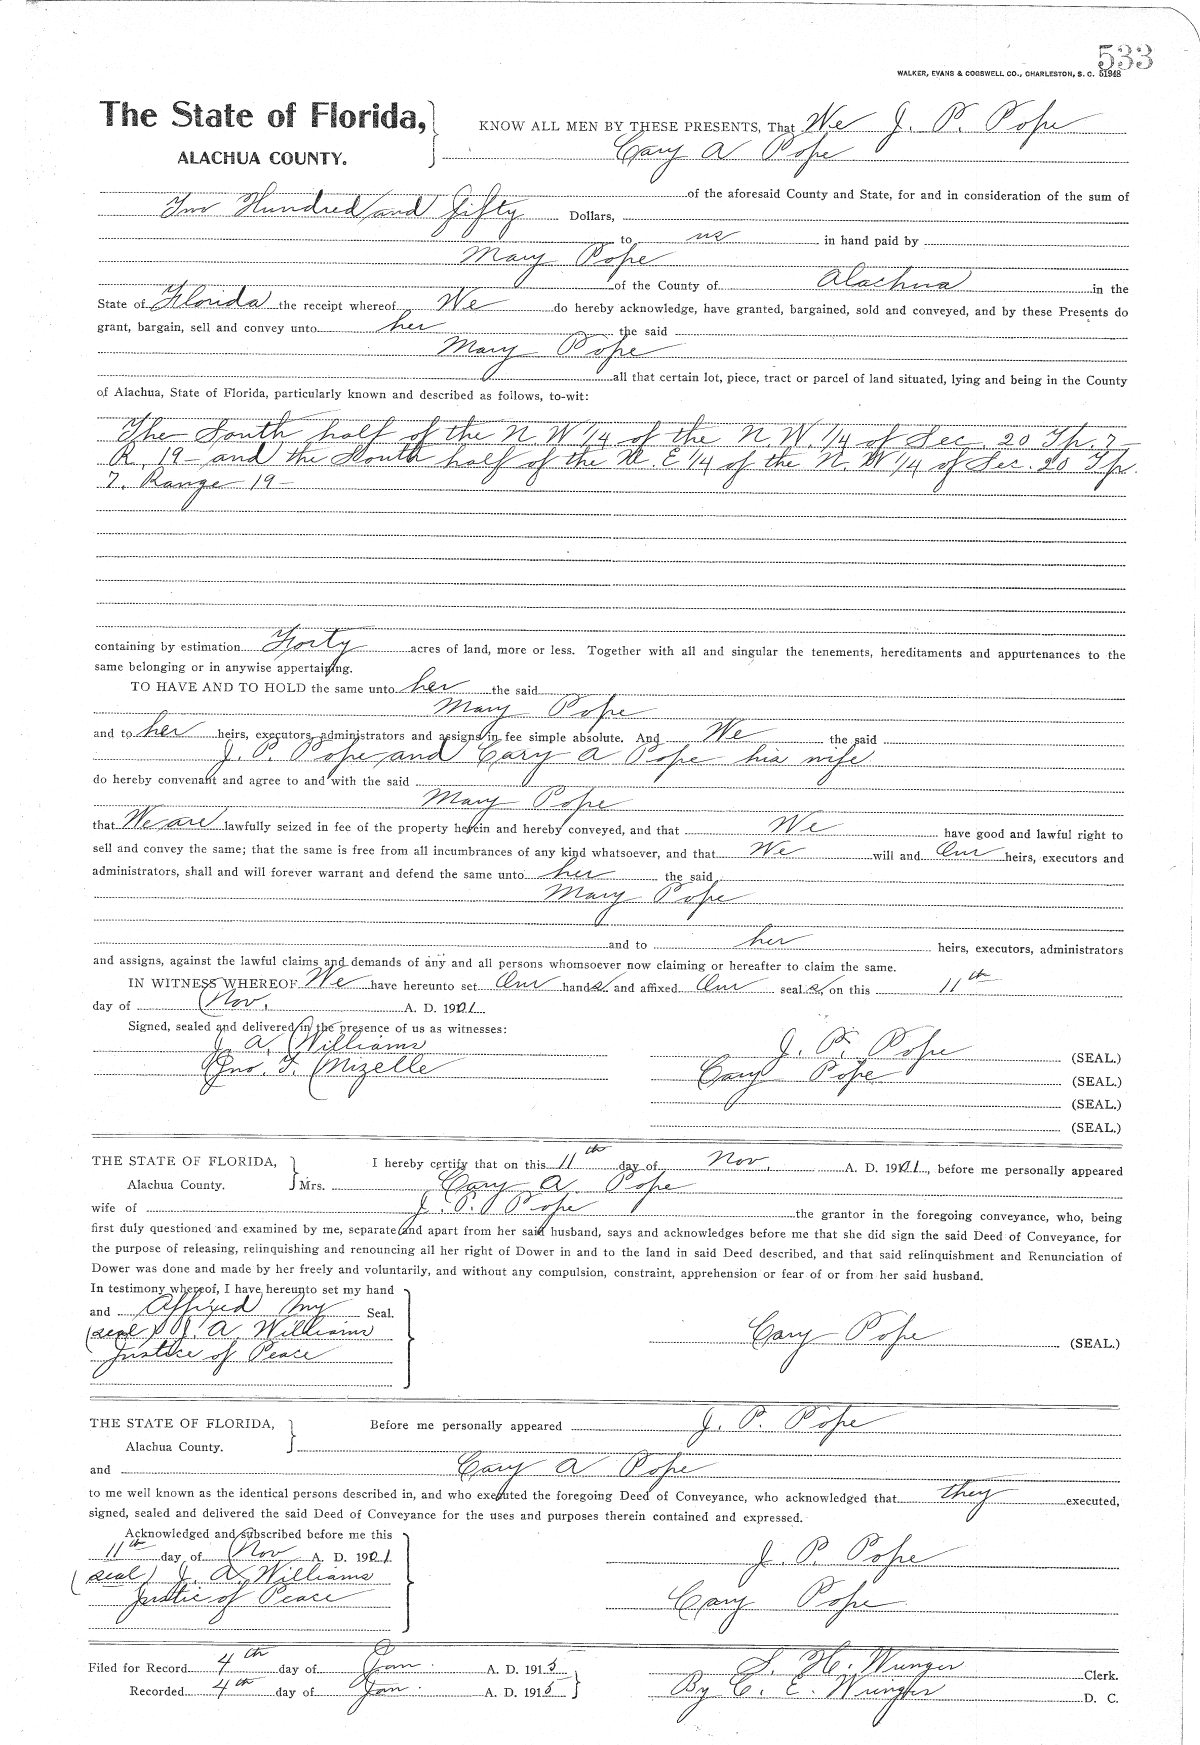 533
WALKER, EVANS & COGSWELL CO., CHARLESTON, S. C. 51948
The State of Florida,
ALACHUA COUNTY.
KNOW ALL MEN BY THESE PRESENTS, That We J. P. Pope
Cary A Pope
of the aforesaid County and State, for and in consideration of the sum of
Two Hundred and Fifty Dollars,
to us in hand paid by
Mary Pope
of the County of Alachua in the
State of Florida the receipt whereof We do hereby acknowledge, have granted, bargained, sold and conveyed, and by these Presents do
grant, bargain, sell and convey unto her the said
Mary Pope
all that certain lot, piece, tract or parcel of land situated, lying and being in the County
of Alachua, State of Florida, particularly known and described as follows, to-wit:
The South half of the N W 1/4 of the N W. 1/4 of Sec. 20 Tp. 7-
R. 19- and the South half of the N. E 1/4 of the N. W 1/4 of Sec. 20 Tp.
7. Range 19-
containing by estimation Forty acres of land, more or less. Together with all and singular the tenements, hereditaments and appurtenances to the
same belonging or in anywise appertaining.
TO HAVE AND TO HOLD the same unto her the said
Mary Pope
and to her heirs, executors, administrators and assigns in fee simple absolute. And We the said
J. P. Pope and Cary A Pope his wife
do hereby convenant and agree to and with the said
Mary Pope
that We are lawfully seized in fee of the property herein and hereby conveyed, and that We have good and lawful right to
sell and convey the same; that the same is free from all incumbrances of any kind whatsoever, and that We will and Our heirs, executors and
administrators, shall and will forever warrant and defend the same unto her the said
Mary Pope
and to her heirs, executors, administrators
and assigns, against the lawful claims and demands of any and all persons whomsoever now claiming or hereafter to claim the same.
IN WITNESS WHEREOF We have hereunto set Our hands and affixed Our seals, on this 11th
day of Nov, A. D. 1901
Signed, sealed and delivered in the presence of us as witnesses:
J. A. Williams
Jno. F. Mizelle
J. P. Pope (SEAL.)
Cary Pope (SEAL.)
(SEAL.)
(SEAL.)
THE STATE OF FLORIDA,
Alachua County.
I hereby certify that on this 11th day of Nov, A. D. 1901, before me personally appeared
Mrs. Cary A. Pope
wife of J. P. Pope the grantor in the foregoing conveyance, who, being
first duly questioned and examined by me, separate and apart from her said husband, says and acknowledges before me that she did sign the said Deed of Conveyance, for
the purpose of releasing, relinquishing and renouncing all her right of Dower in and to the land in said Deed described, and that said relinquishment and Renunciation of
Dower was done and made by her freely and voluntarily, and without any compulsion, constraint, apprehension or fear of or from her said husband.
In testimony whereof, I have hereunto set my hand
and Affixed My Seal.
(seal) J. A. Williams
Justice of Peace
Cary Pope (SEAL.)
THE STATE OF FLORIDA,
Alachua County.
Before me personally appeared J. P. Pope
and Cary A Pope
to me well known as the identical persons described in, and who executed the foregoing Deed of Conveyance, who acknowledged that they executed,
signed, sealed and delivered the said Deed of Conveyance for the uses and purposes therein contained and expressed.
Acknowledged and subscribed before me this
11th day of Nov A. D. 1901.
(seal) J. A. Williams
Justic of Peace
J. P. Pope
Cary Pope
Filed for Record 4th day of Jan. A. D. 1915
Recorded 4th day of Jan. A. D. 1915
S. H. Wienges Clerk.
By C. E. Wienges D. C.